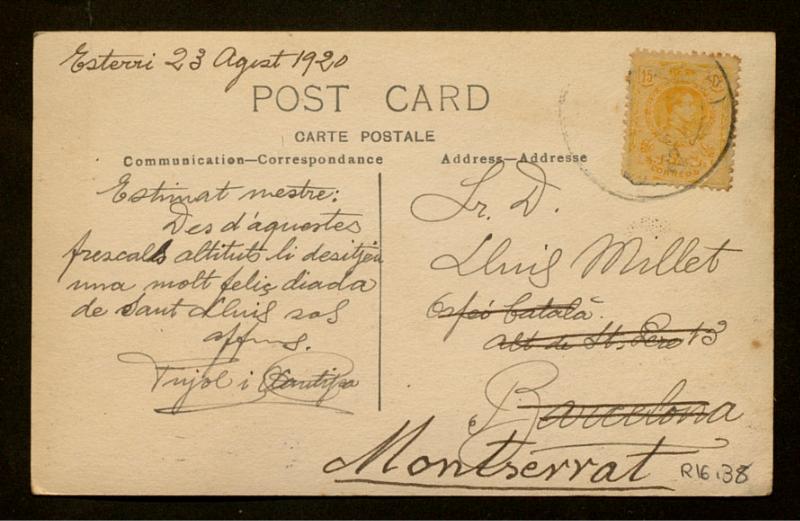 Esterri 23 Agost 1920
POST CARD
CARTE POSTALE
Communication—Correspondance
Address—Addresse
Estimat mestre:
Des d'aquestes
frescals altituts li desitjen
una molt feliç diada
de Sant Lluis sos
affms.
Pujol i
Sr. D.
Lluis Millet
Orfeó Català
Alt de St. Pere 13
Barcelona
Montserrat
R16.38
15
CORREOS